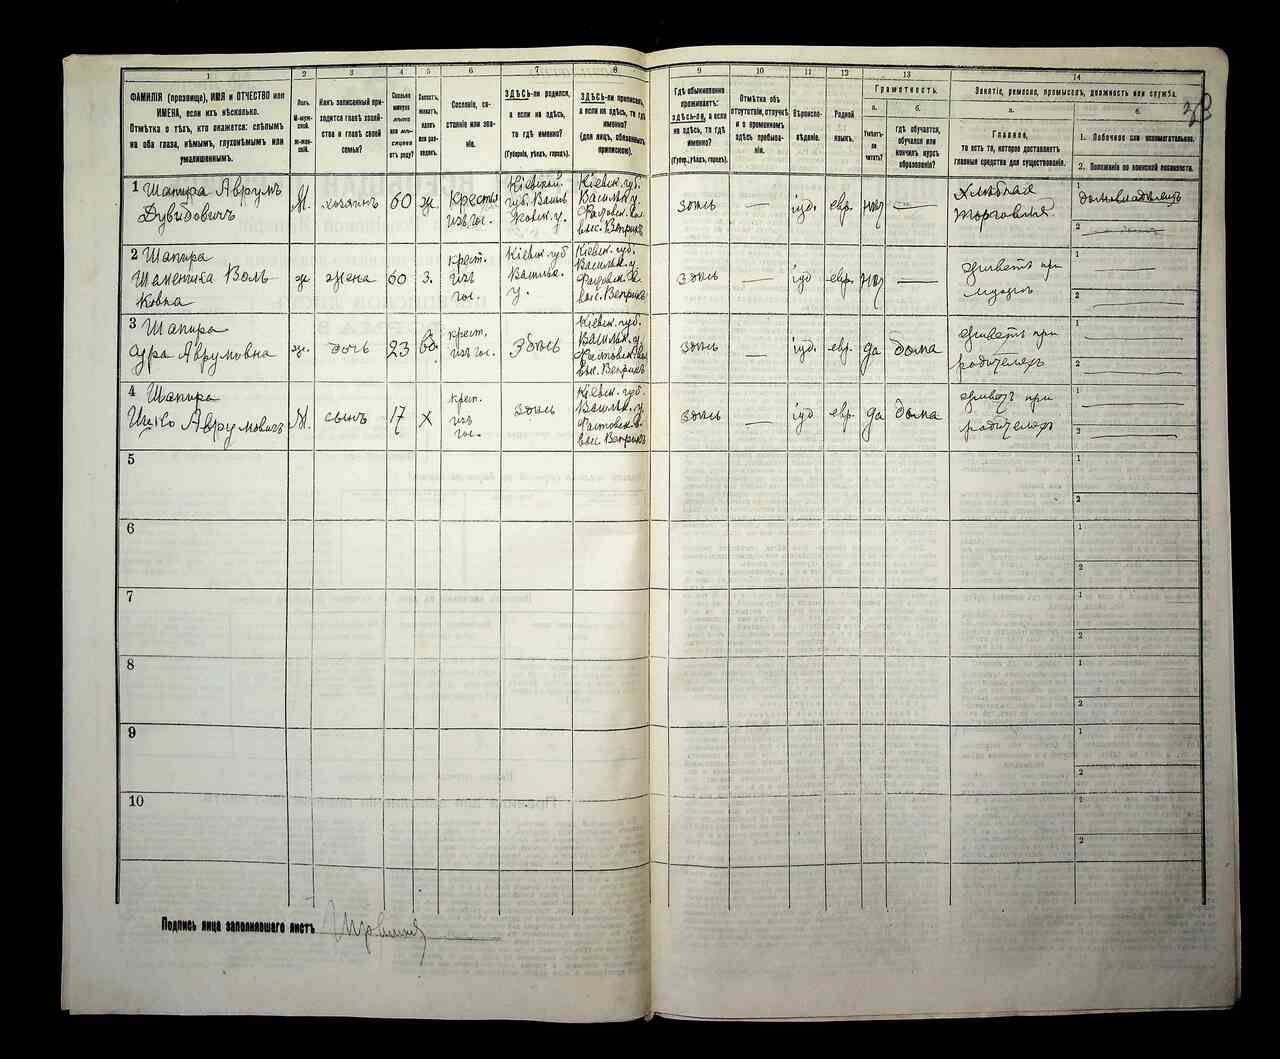 1
2
3
4
5
6
7
8
9
10
11
12
13
14
ФАМИЛІЯ (прозвище), ИМЯ и ОТЧЕСТВО или
ИМЕНА, если ихъ нѣсколько.
Отмѣтка о тѣхъ, кто окажется: слѣпымъ
на оба глаза, нѣмымъ, глухонѣмымъ или
умалишеннымъ.
Полъ.
М-муж-
ской.
ж-жен-
скій.
Какъ записанный при-
ходится главѣ хозяй-
ства и главѣ своей
семьи?
Сколько
минуло
лѣтъ
отъ роду?
Холостъ,
женатъ,
вдовъ
или раз-
веденъ.
Сословіе, со-
стояніе или зва-
ніе.
ЗДѢСЬ-ли родился,
а если не здѣсь,
то гдѣ именно?
(Губернія, уѣздъ, городъ).
ЗДѢСЬ-ли приписанъ,
а если не здѣсь, то гдѣ
именно?
(для лицъ, обязанныхъ
припиской).
Гдѣ обыкновенно
проживаетъ:
ЗДѢСЬ-ли, а если
не здѣсь, то гдѣ
именно?
(Губер., уѣздъ, городъ).
Отмѣтка объ
отсутствіи, отлучкѣ
и о временномъ
здѣсь пребыва-
ніи.
Вѣроиспо-
вѣданіе.
Родной
языкъ.
Грамотность.
а.
Умѣетъ-
ли
читать?
б.
гдѣ обучается,
обучался или
кончилъ курсъ
образованія?
Занятіе, ремесло, промыселъ, должность или служба.
а.
Главное,
то есть то, которое доставляетъ
главныя средства для существованія.
б.
1. Побочное или вспомогательное.
2. Положеніе по воинской повинности.
1 Шапира Аврумъ
Дувидовичъ
М.
хозяинъ
60
ж.
крестья
изъ гос.
Кіевской
губ. Васильк
ковск. у.
Кіевск. губ.
Васильк. у.
Фастовск. во
выс. Веприкъ
здѣсь
—
іуд.
евр.
нѣтъ
—
Хлѣбная
торговля
1
домовладѣлецъ
2
2 Шапира
Воль
ковна
ж
жена
60
З.
крест.
изъ
гос.
Кіевск. губ
Васильк.
у.
Кіевск. губ.
Васильк. у.
Фастовск. во
выс. Веприкъ
здѣсь
—
іуд
евр.
нѣтъ
—
живетъ при
мужѣ
1
2
3 Шапира
Аврумовна
ж.
дочь
23
крест.
изъ гос.
Здѣсь
Кіевск. губ.
Васильк. у.
Фастовск. во
выс. Веприкъ
здѣсь
—
іуд.
евр.
да
дома
живетъ при
родителяхъ
1
2
4 Шапира
Ицко Аврумовичъ
М.
сынъ
17
х
крест.
изъ
гос.
здѣсь
Кіевск. губ.
Васильк. у.
Фастовск. в.
выс. Веприкъ
здѣсь
—
іуд
евр.
да
дома
живетъ при
родителяхъ
1
2
5
1
2
6
1
2
7
1
2
8
1
2
9
1
2
10
1
2
Подпись лица заполнявшаго листъ